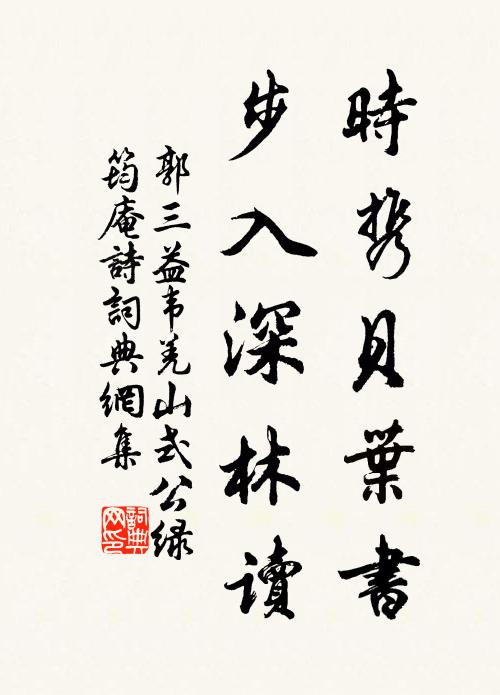 時携貝葉書
步入深林讀
郭三益韦羌山式公绿
筠庵詩詞典網集
詞典
网印